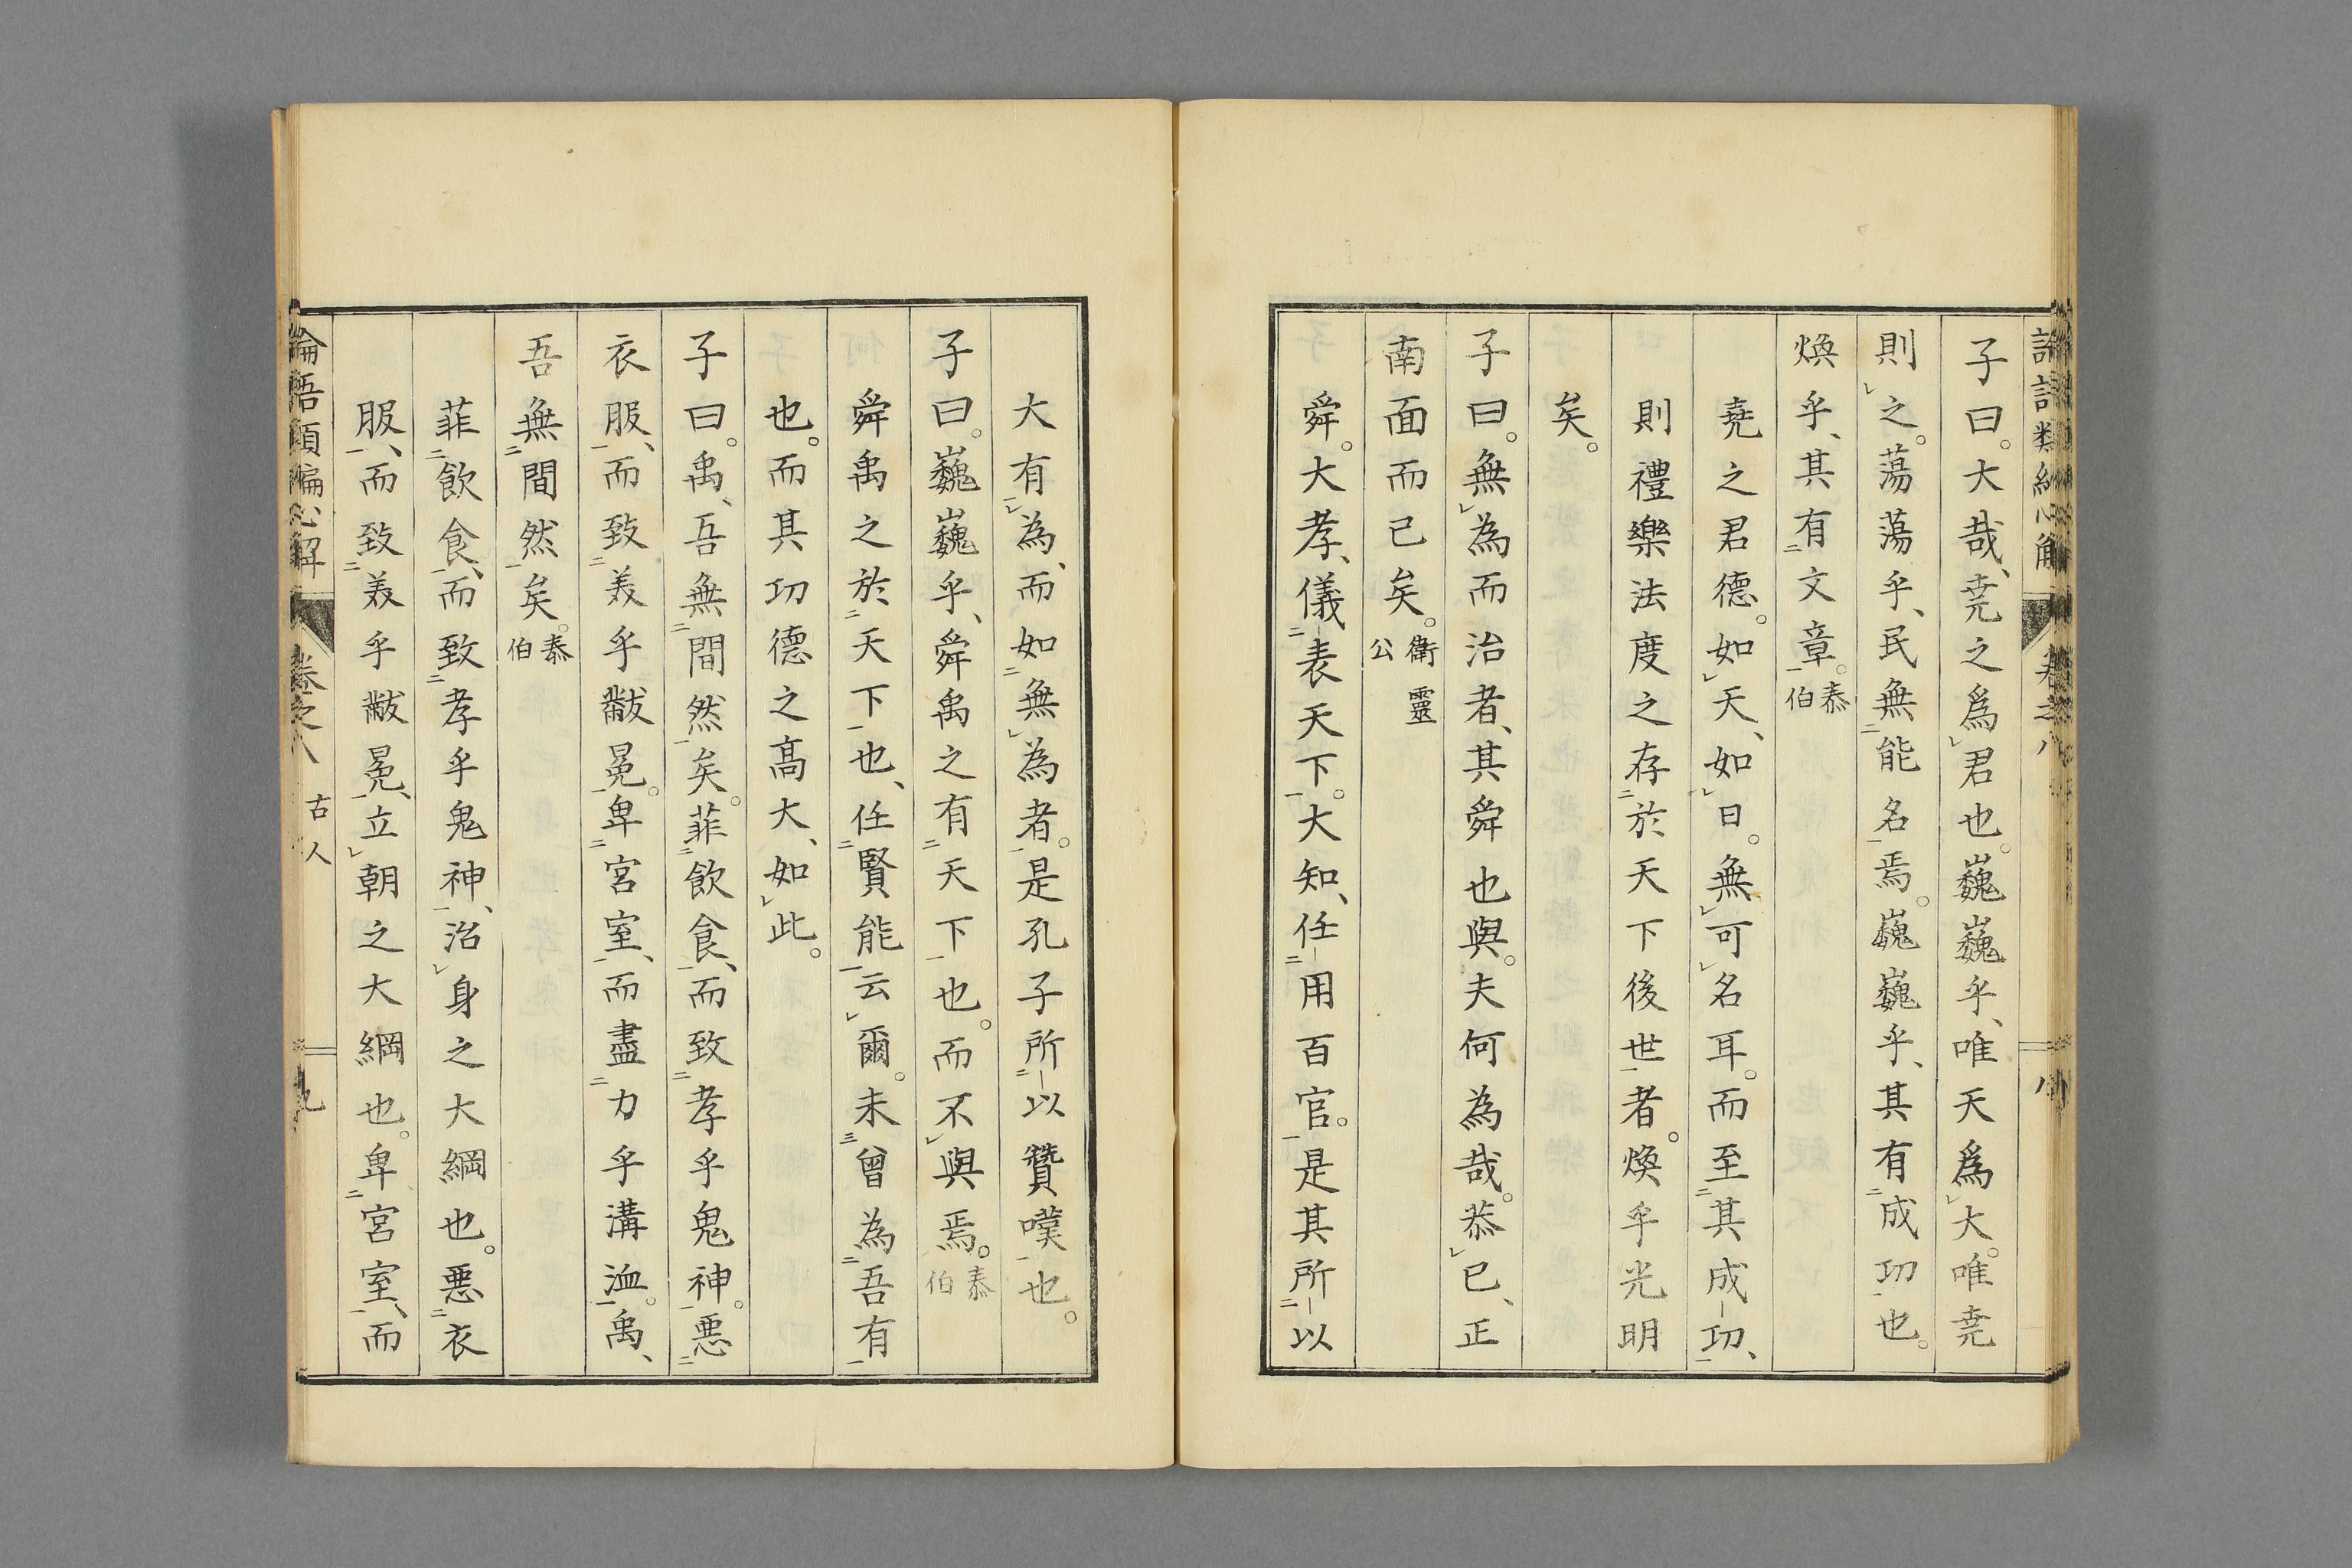 子曰。大哉、堯之爲君也。巍巍乎、唯天爲大。唯堯
則之。蕩蕩乎、民無能名焉。巍巍乎、其有成功也。
煥乎、其有文章。泰伯
堯之君德。如天、如日。無可名耳。而至其成功、
則禮樂法度之存於天下後世者。煥乎光明
矣。
子曰。無為而治者、其舜也與。夫何為哉。恭己、正
南面而已矣。衛靈公
舜。大孝、儀表天下。大知、任用百官。是其所以
大有為、而如無為者。是孔子所以贊嘆也。
子曰。巍巍乎、舜禹之有天下也。而不與焉。泰伯
舜禹之於天下也、任賢能云爾。未曾為吾有
也。而其功德之高大、如此。
子曰。禹、吾無間然矣。菲飲食、而致孝乎鬼神。悪
衣服、而致美乎黻冕。卑宮室、而盡力乎溝洫。禹、
吾無間然矣。泰伯
菲飲食、而致孝乎鬼神、治身之大綱也。悪衣
服、而致美乎黻冕、立朝之大綱也。卑宮室、而
論語類編心解 卷之八 古人 九